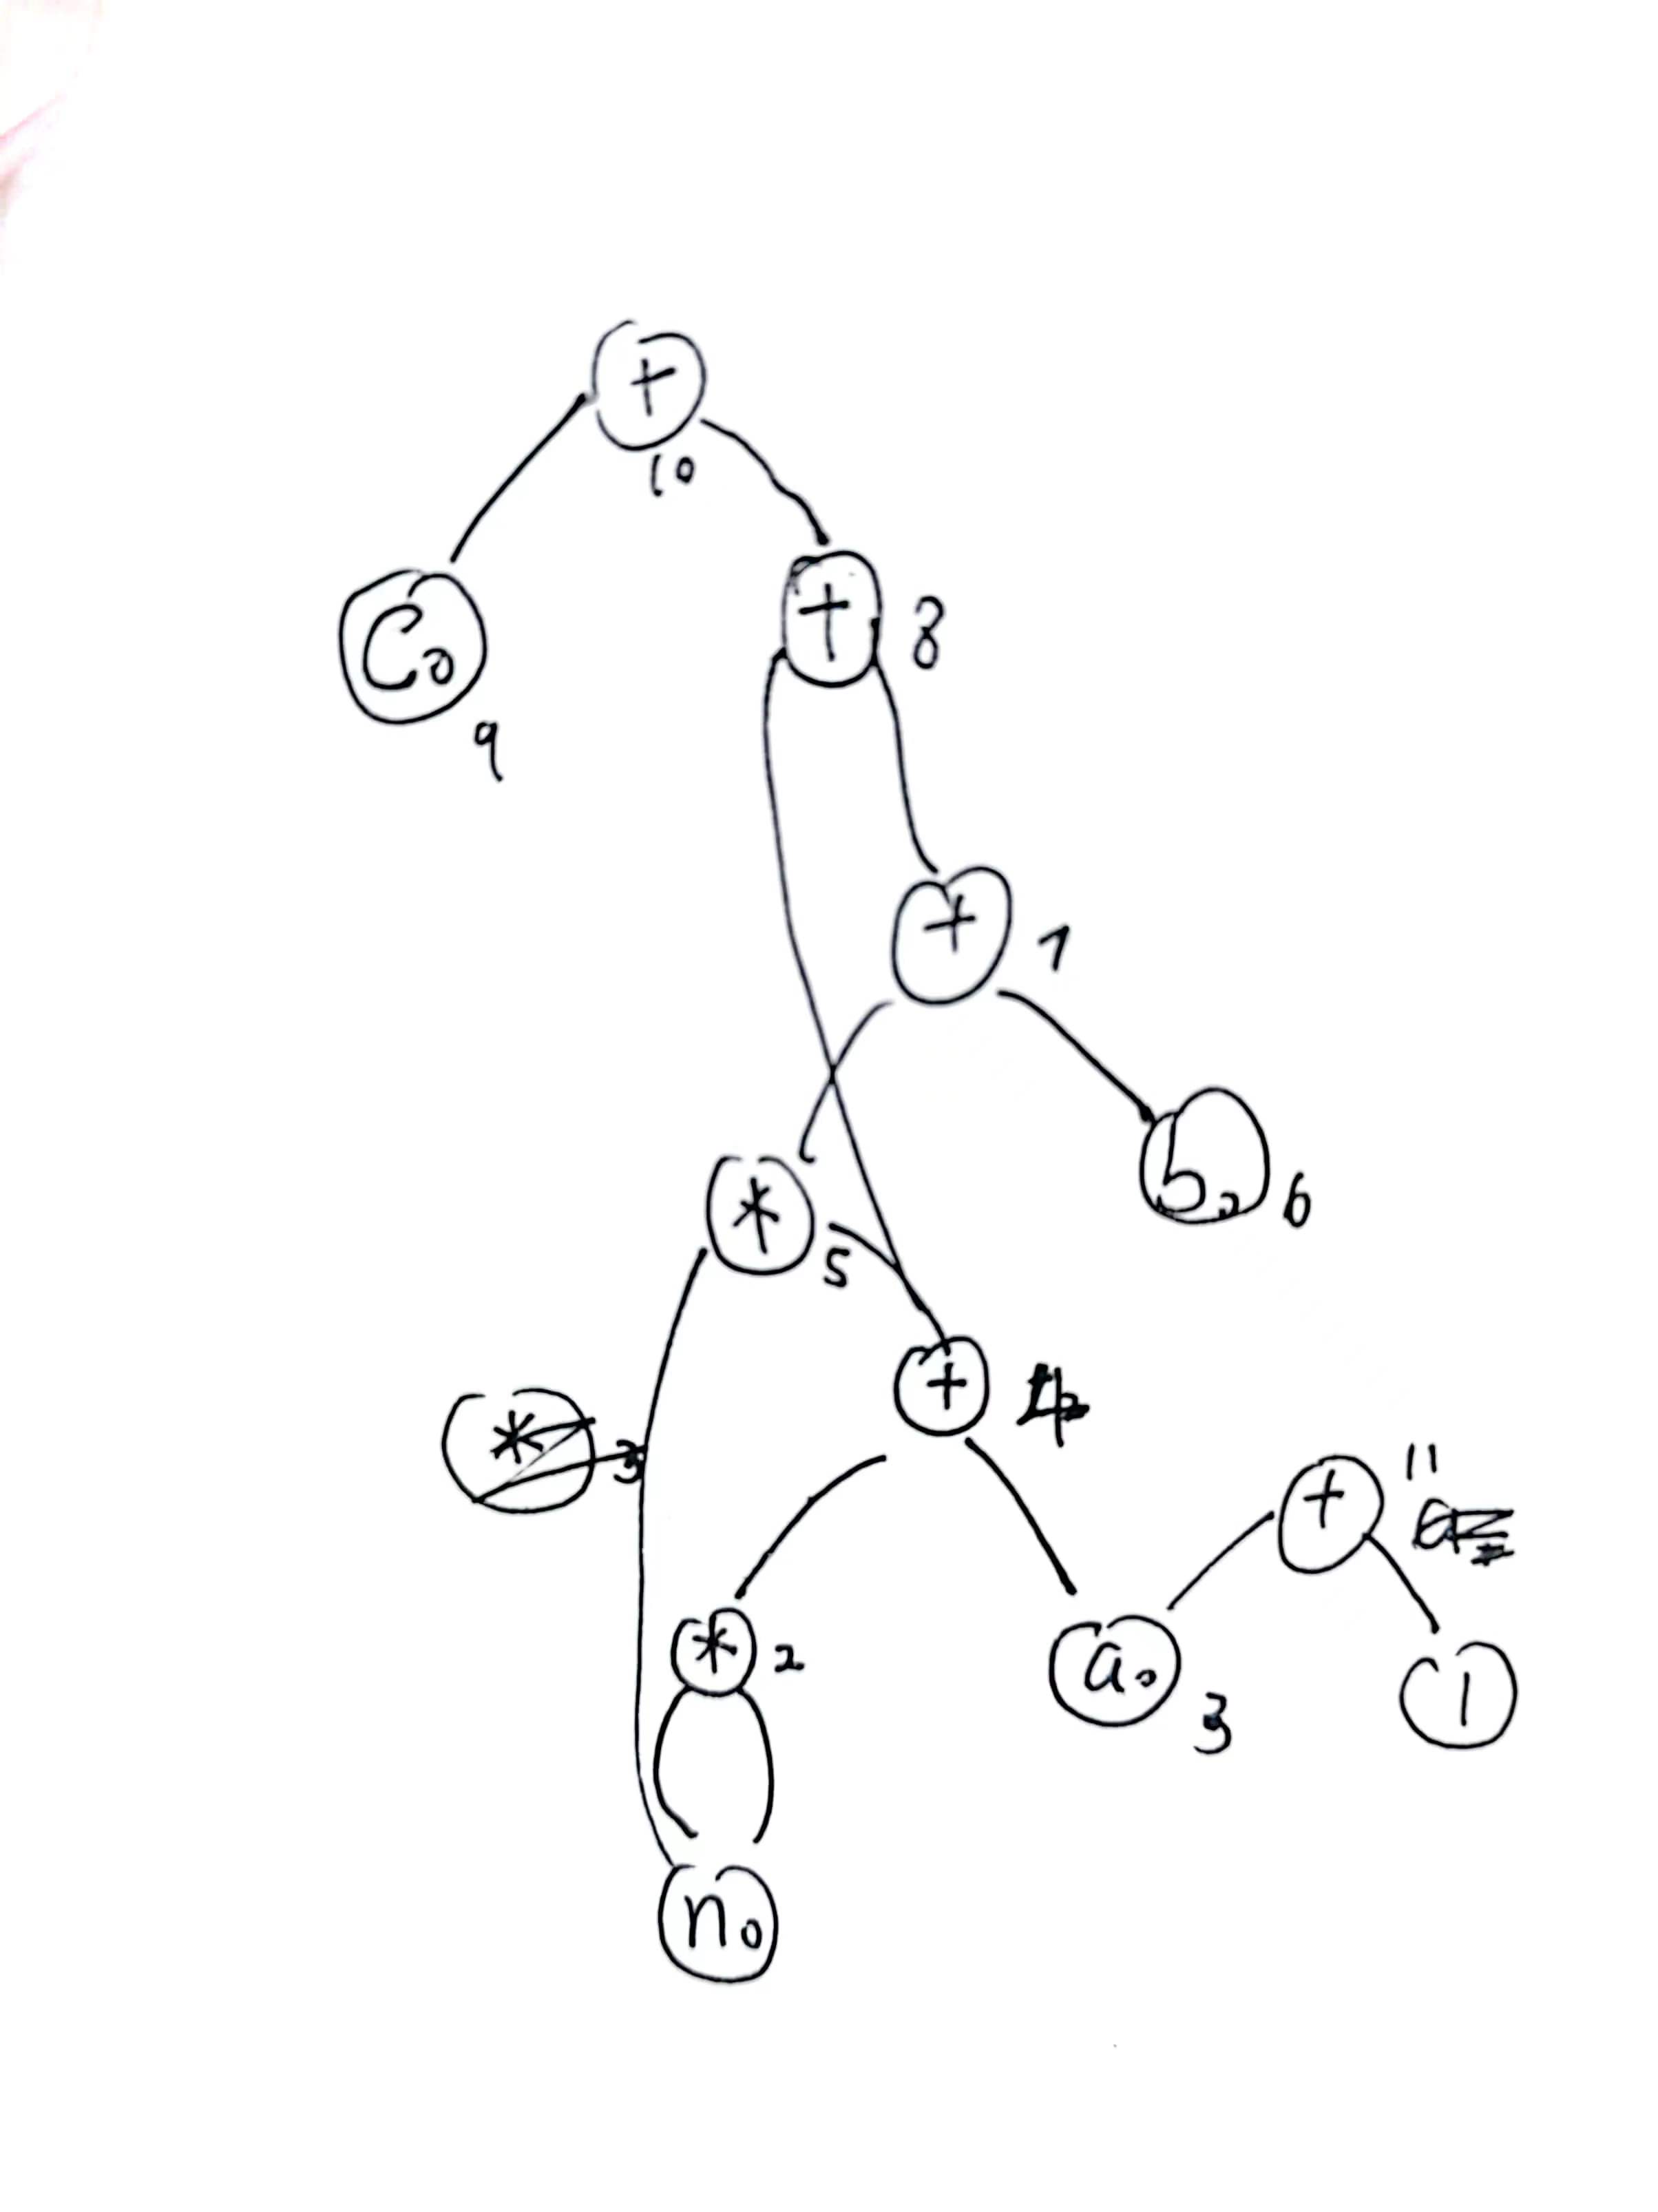 +
10
+ 8
C0
9
+ 7
b0 6
*
5
+ 4
*
3
+ 11
* 2
a0
3
1
n0